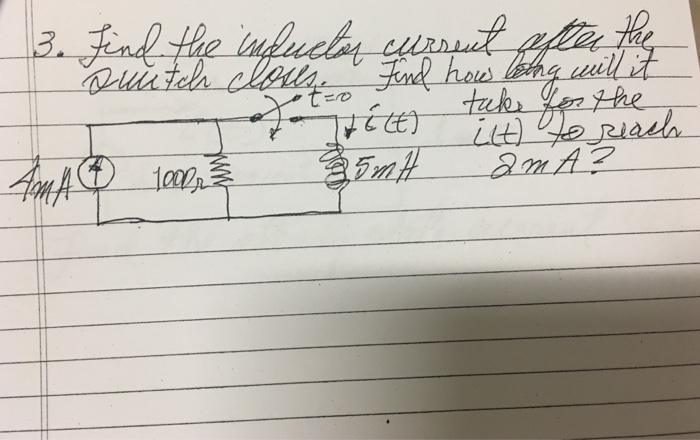 3. Find the inductor current after the
switch closes. Find how long will it
t=0 take for the
i(t) i(t) to reach
4mA 1000Ω 5mH 2mA?